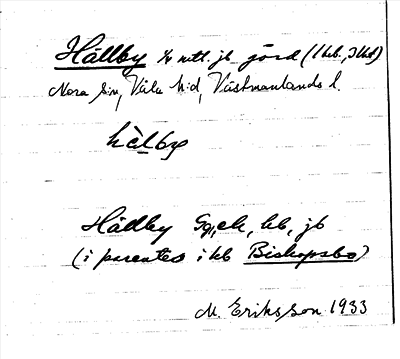 Hällby ½ mtl. jb jord (1 hb., 3 lhd)
Nora sn, Våla h:d, Västmanlands l.
hälby
Hällby Gg, ek, hb, jb
(i parentes i hb Biskopsbo)
M. Eriksson 1933